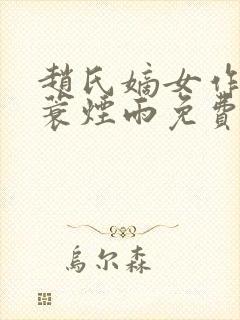 趙氏嫡女作
蓑煙雨免費
烏尔森